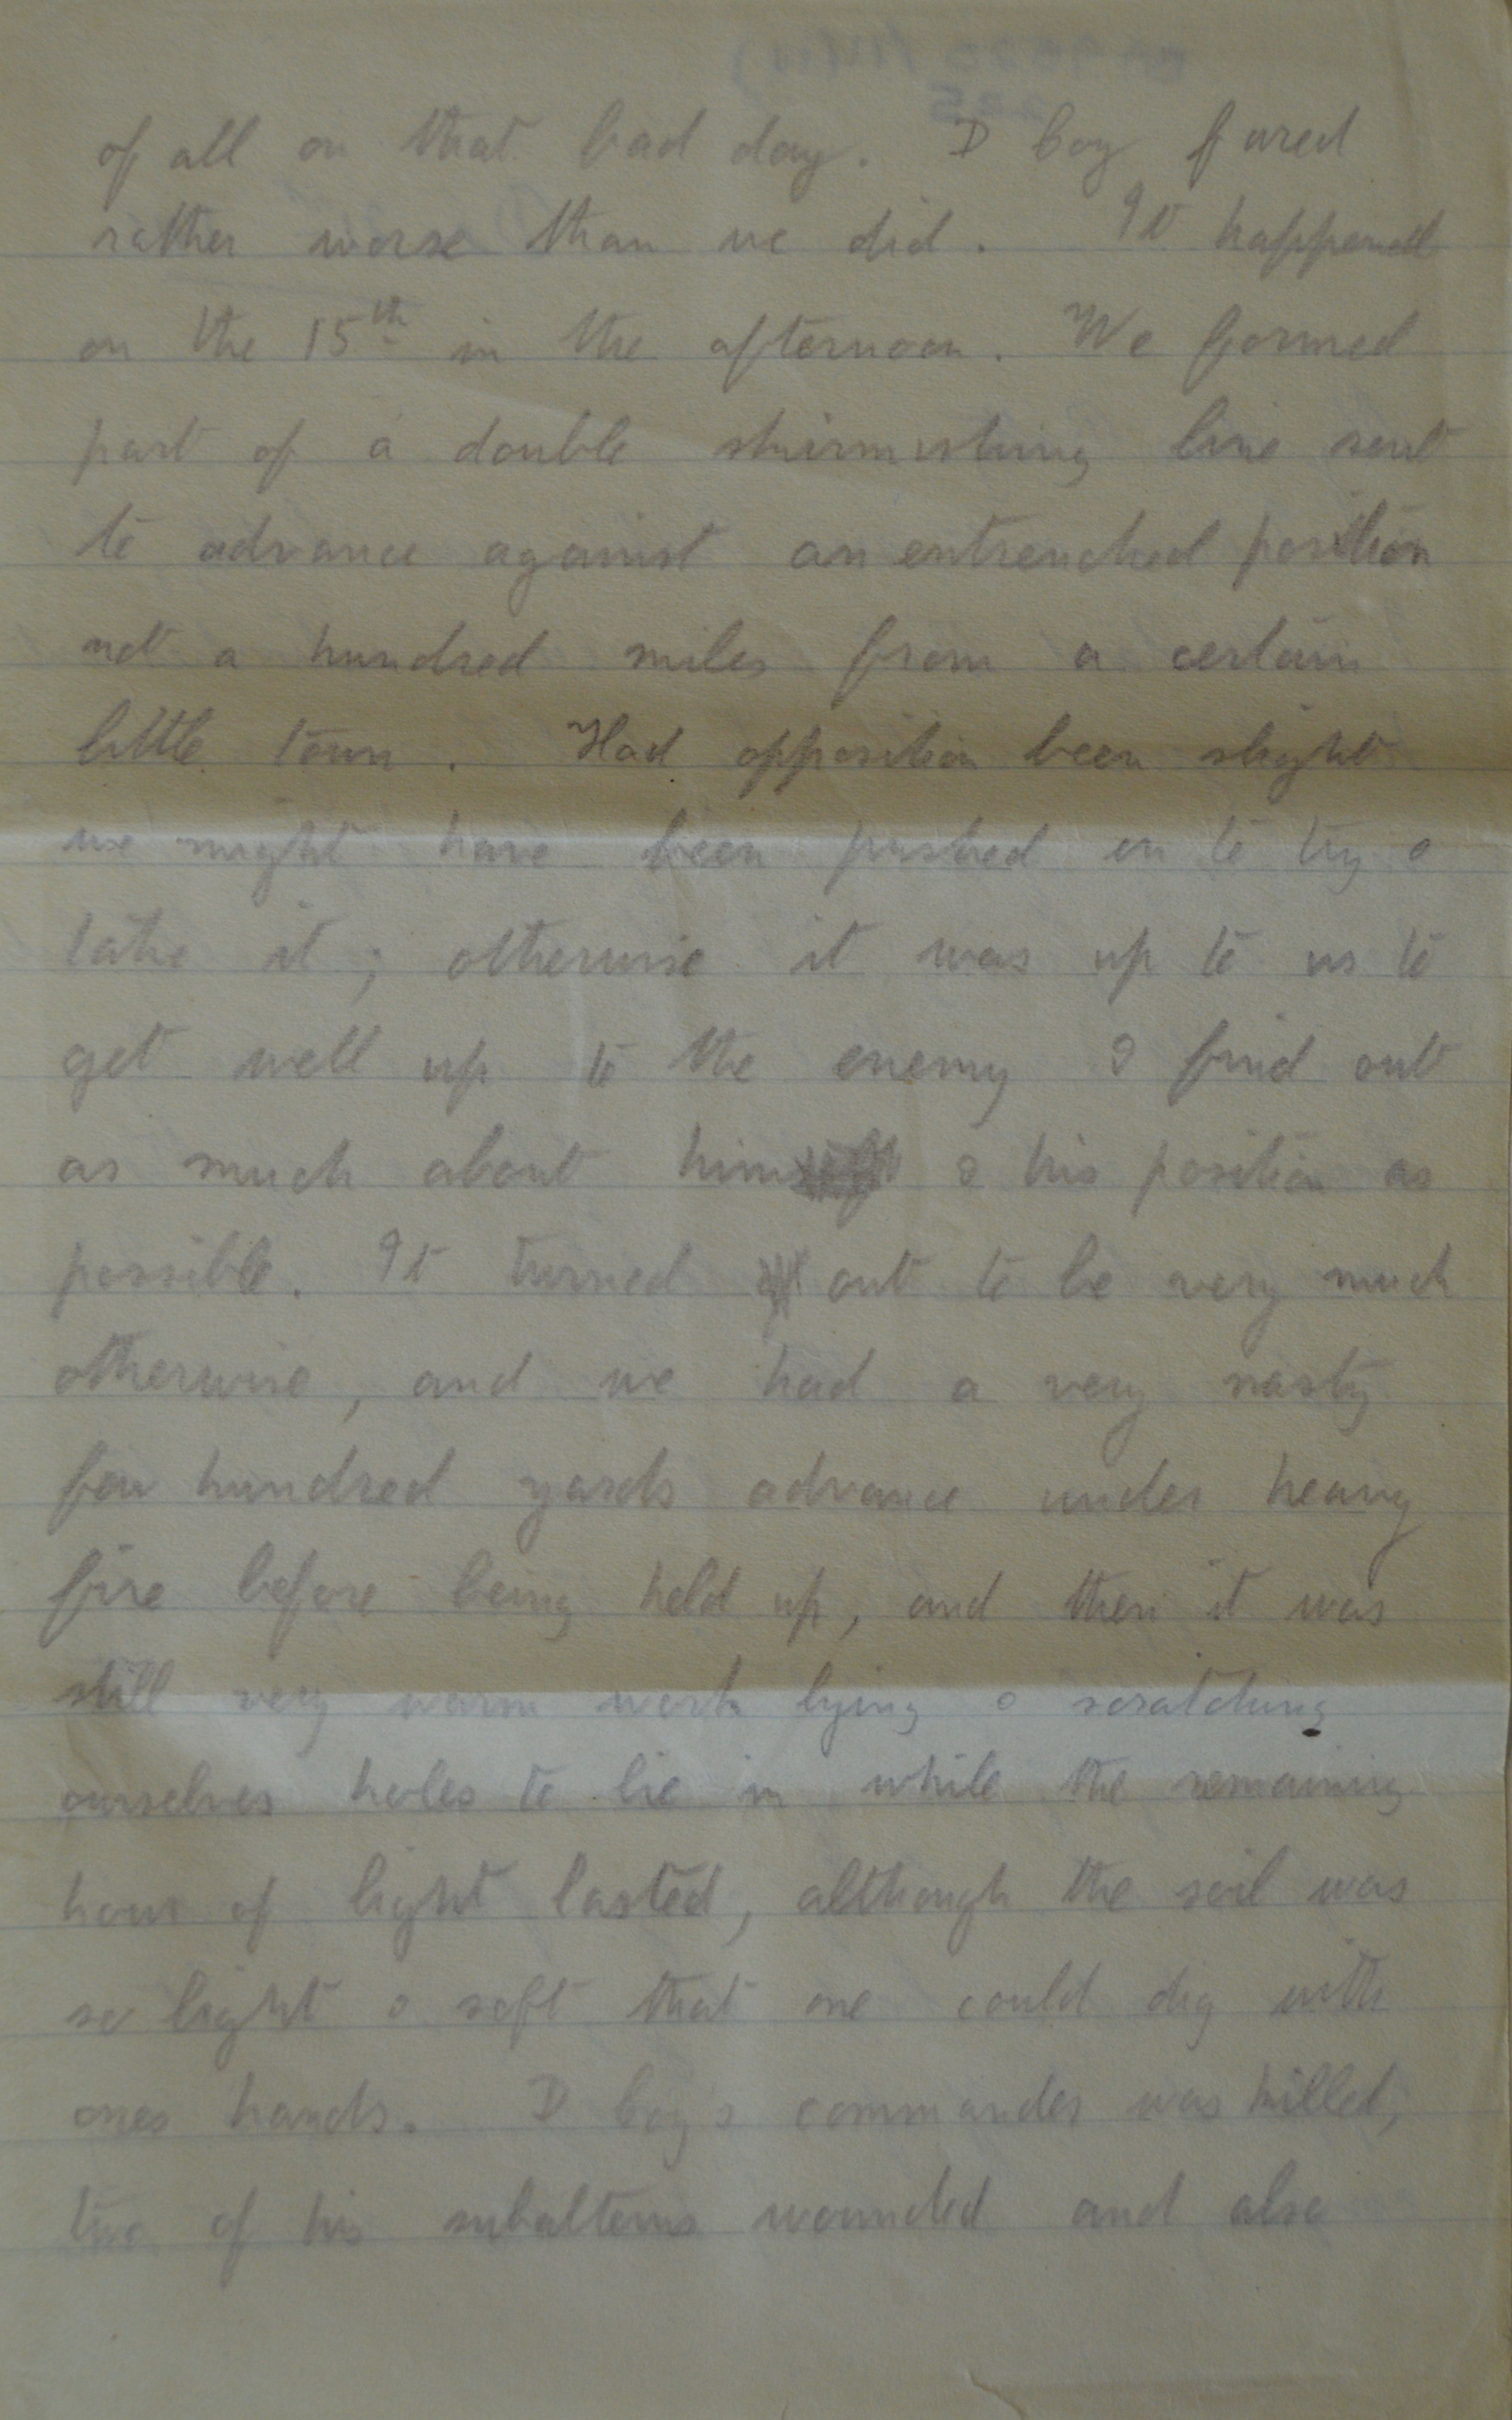 of all on that bad day. D Coy fared
rather worse than we did. It happened
on the 15th in the afternoon. We formed
part of a double skirmishing line sent
to advance against an entrenched position
not a hundred miles from a certain
little town. Had opposition been slight
we might have been pushed on to try &
take it; otherwise it was up to us to
get well up to the enemy & find out
as much about him & his position as
possible. It turned out to be very much
otherwise, and we had a very nasty
few hundred yards advance under heavy
fire before being held up, and then it was
still very warm work lying & scratching
ourselves holes to lie in while the remaining
hour of light lasted, although the soil was
so light & soft that one could dig with
ones hands. D Coy's commander was killed,
two of his subalterns wounded and also